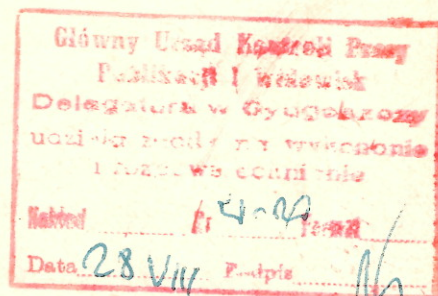 Główny Urząd Kontroli Prasy
Publikacji i Widowisk
Delegatura w Bydgoszczy
udziela zgody na wykonanie
i rozpowszechnienie
Nakład Nr Format
Data 28 VIII Podpis